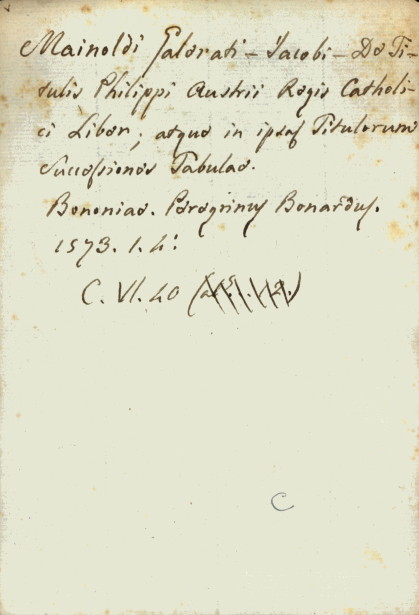 Mainoldi Galerati – Iacobi – De Ti-
tulis Philippi Austrii Regis Catholi-
ci Liber; atque in ipsas Titulorum
Successiones Tabulae.
Bononiae. Peregrinus Bonardus.
1573. 1. 4:
C. VI. 40
C